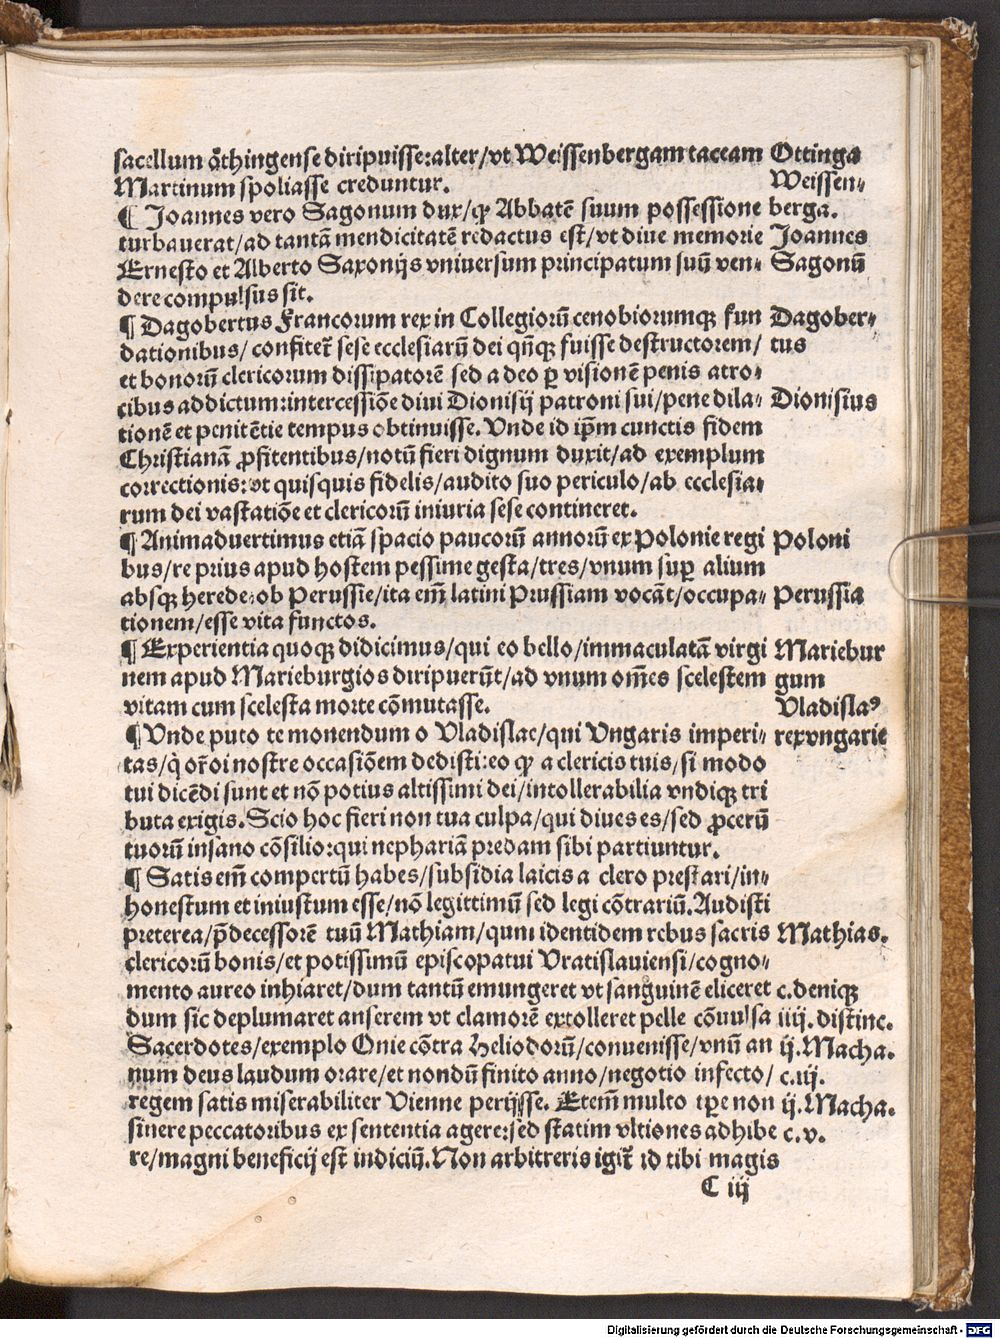 sacellum ōthingense diripuisse:alter/vt Weissenbergam taceam Ottinga
Martinum spoliasse creduntur. Weissen⸗
¶ Joannes vero Sagonum dux/qꝫ Abbatē suum possessione berga.
turbauerat/ad tantā mendicitatē redactus est/vt diue memorie Joannes
Ernesto et Alberto Saxonijs vniuersum principatum suū ven⸗ Sagonū
dere compulsus sit.
¶ Dagobertus Francorum rex in Collegiorū cenobiorumqꝫ fun Dagober⸗
dationibus/ confitet̄ sese ecclesiarū dei qn̄qꝫ fuisse destructorem/ tus
et bonorū clericorum dissipatorē sed adeo ꝑ visionē penis atro⸗
cibus addictum:intercessiōe diui Dionisij patroni sui/pene dila⸗ Dionisius
tionē et penitētie tempus obtinuisse. Vnde id ip̄m cunctis fidem
Christianā ꝓfitentibus/notū fieri dignum duxit/ad exemplum
correctionis:vt quisquis fidelis/audito suo periculo/ab ecclesia⸗
rum dei vastatiōe et clericorū iniuria sese contineret.
¶ Animaduertimus etiā spacio paucorū annorū ex Polonie regi Poloni
bus/re prius apud hostem pessime gesta/tres/vnum suꝑ alium
absqꝫ herede:ob Perussie/ita em̄ latini Prussiam vocāt/occupa⸗ Perussia
tionem/esse vita functos.
¶ Experientia quoqꝫ didicimus/qui eo bello/immaculatā virgi Mariebur
nem apud Marieburgios diripuerūt/ad vnum om̄es scelestem gum
vitam cum scelesta morte cōmutasse. Vladislaꝰ
¶ Vnde puto te monendum o Vladislae/qui Vngaris imperi⸗ rex vngarie
tas/q̇ or̄oi nostre occasiōem dedisti:eo qꝫ a clericis tuis/si modo
tui dicēdi sunt et nō potius altissimi dei/intollerabilia vndiqꝫ tri
buta exigis. Scio hoc fieri non tua culpa/qui diues es/sed ꝓcerū
tuorū insano cōsilio:qui nephariā predam sibi partiuntur.
¶ Satis em̄ compertū habes/subsidia laicis a clero prestari/in⸗
honestum et iniustum esse/nō legittimū sed legi cōtrariū. Audisti
preterea/p̄decessorē tuū Mathiam/qum identidem rebus sacris Mathias.
clericorū bonis/et potissimū episcopatui Vratislauiensi/cogno⸗
mento aureo inhiaret/dum tantū emungeret vt sanguinē eliceret c.deniqꝫ
dum sic deplumaret anserem vt clamorē extolleret pelle cōuulsa iiij. distinc.
Sacerdotes/exemplo Onie cōtra Heliodorū/conuenisse/vnū an ij. Macha.
num deus laudum orare/et nondū finito anno/negotio infecto/ c.iij.
regem satis miserabiliter Vienne perijsse. Etem̄ multo tꝑe non ij. Macha.
sinere peccatoribus ex sententia agere:sed statim vltiones adhibe c.v.
re/magni beneficij est indiciū. Non arbitreris igit̄ id tibi magis
C iij
Digitalisierung gefördert durch die Deutsche Forschungsgemeinschaft - DFG